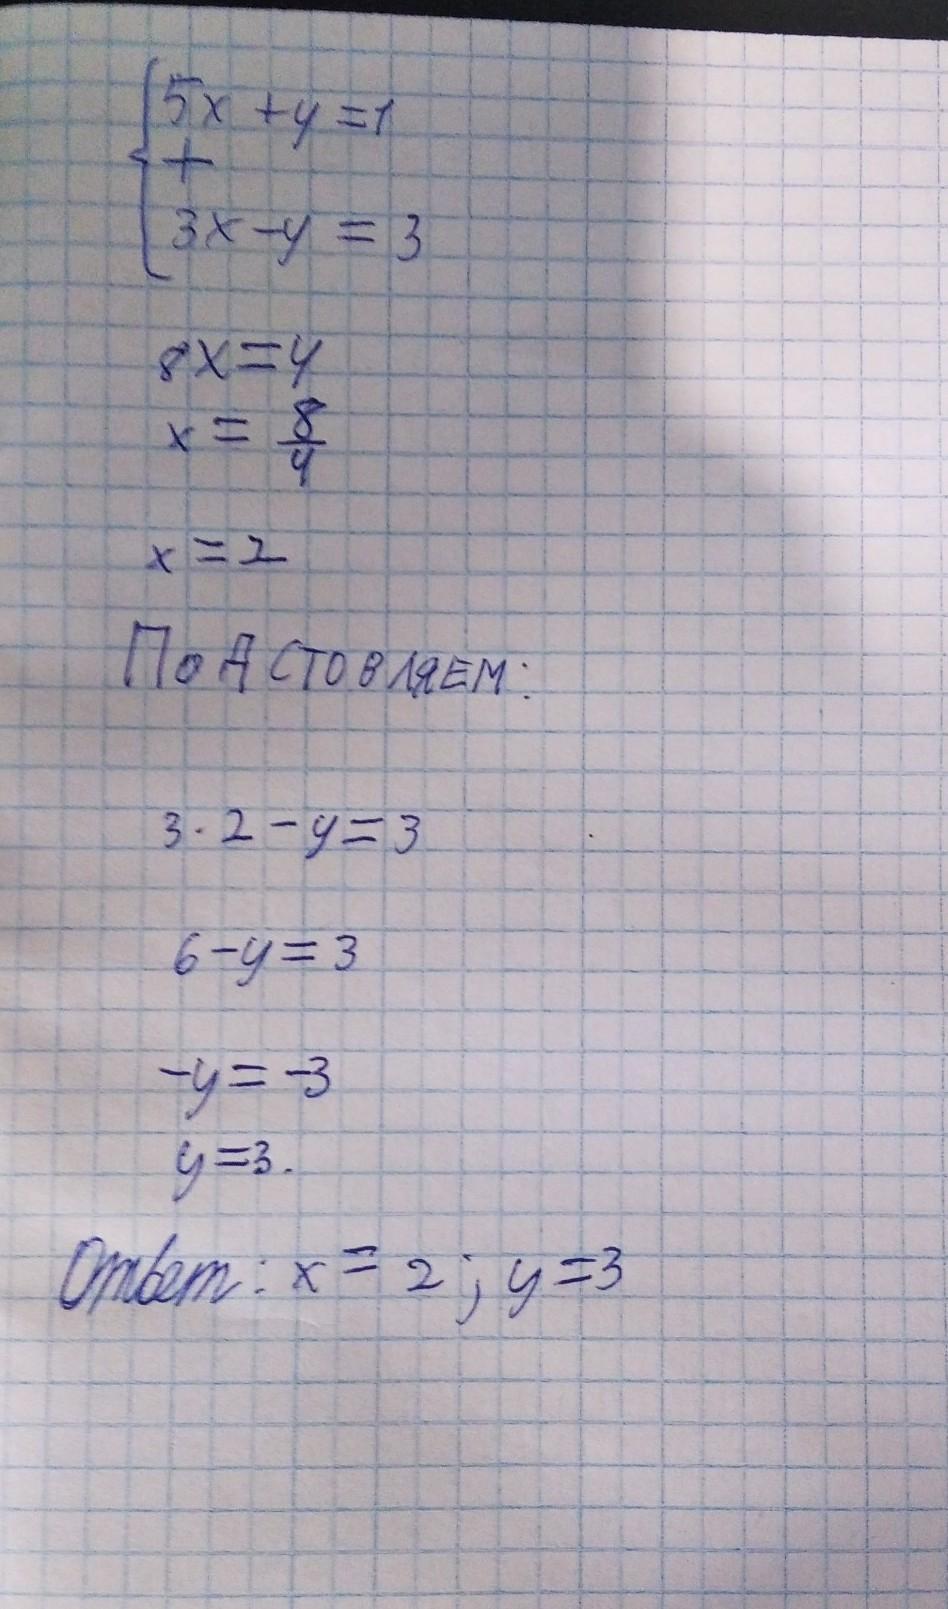 5x + y = 1
+
3x - y = 3
8x = 4
x = 8/4
x = 2
ПОДСТОВЛЯЕМ:
3 · 2 - y = 3
6 - y = 3
-y = -3
y = 3.
Ответ: x = 2; y = 3